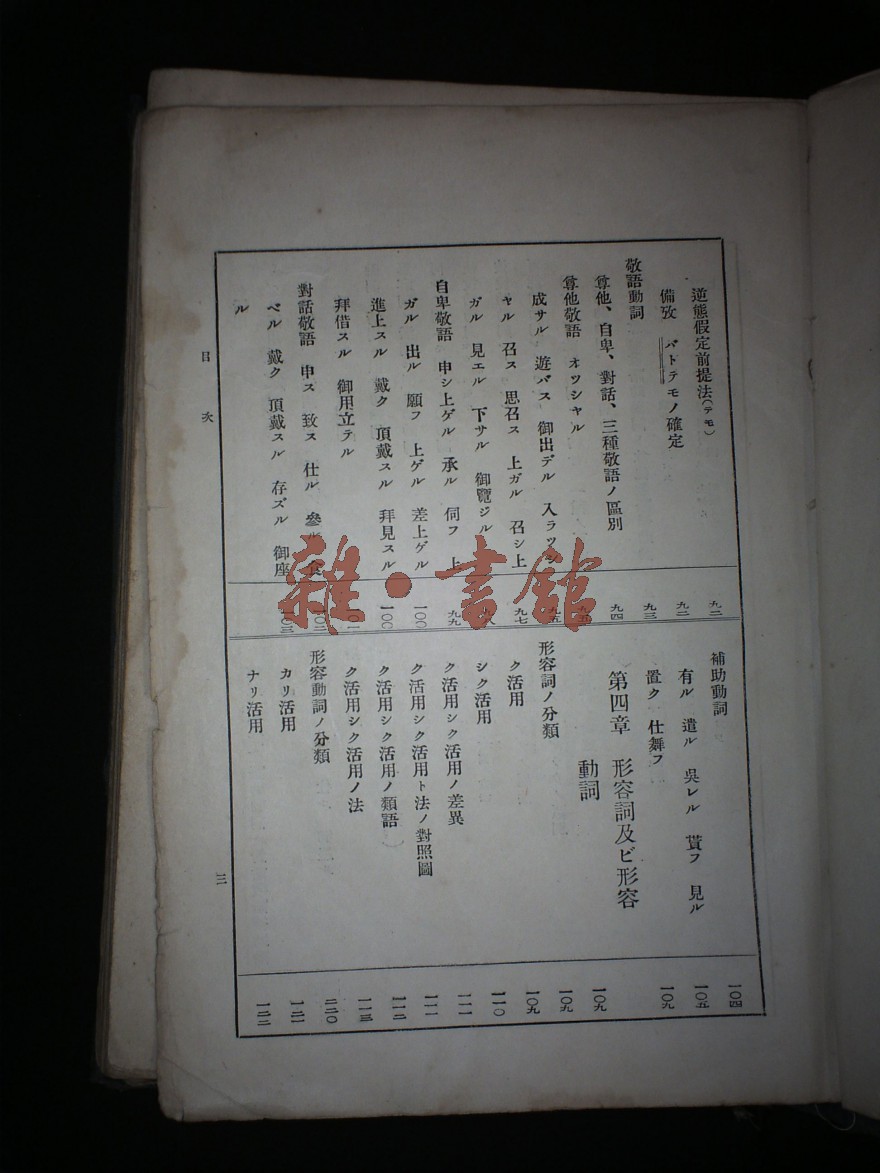 逆態假定前提法(テモ) 九二
備攷 バトテモノ確定 九二
敬語動詞 九三
尊他、自卑、對話、三種敬語ノ區別 九四
尊他敬語 オツシヤル
成サル 遊バス 御出デル 入ラツシ
ヤル 召ス 思召ス 上ガル 召シ上 九七
ガル 見エル 下サル 御覽ジル
自卑敬語 申シ上ゲル 承ル 伺フ 上 九九
ガル 出ル 願フ 上ゲル 差上ゲル 一〇〇
進上スル 戴ク 頂戴スル 拜見スル 一〇〇
拜借スル 御用立テル
對話敬語 申ス 致ス 仕ル 參ル 食
ベル 戴ク 頂戴スル 存ズル 御座 一〇三
ル
補助動詞 一〇四
有ル 遣ル 呉レル 貰フ 見ル 一〇五
置ク 仕舞フ 一〇九
第四章 形容詞及ビ形容
動詞 一〇九
形容詞ノ分類 一〇九
ク活用 一〇九
シク活用 一一〇
ク活用シク活用ノ差異 一一一
ク活用シク活用ト法ノ對照圖 一一一
ク活用シク活用ノ類語 一一二
ク活用シク活用ノ法 一一三
形容動詞ノ分類 一二〇
カリ活用 一二一
ナリ活用 一二二
目次
三
雜·書館